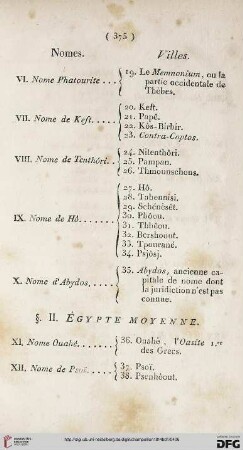 ( 375 )
Nomes. Villes.
VI. Nome Phatourite ... 19. Le Memnonium, ou la
partie occidentale de
Thèbes.
VII. Nome de Keft ..... 20. Keft.
21. Papê.
22. Kôs-Birbir.
23. Contra-Coptos.
VIII. Nome de Tenthôri.. 24. Nitenthôri.
25. Pampan.
26. Thmounschons.
IX. Nome de Hô ....... 27. Hô.
28. Tabennisi.
29. Schénésêt.
30. Phôou.
31. Thbêou.
32. Bershoout.
33.
34. Psjôsj.
X. Nome d'Abydos. .... 35. Abydos, ancienne ca-
pitale de nome dont
la juridiction n'est pas
connue.
§. II. ÉGYPTE MOYENNE.
XI. Nome Ouahé. ...... 36. Ouahé, l'Oasite 1.re
des Grecs.
XII. Nome de Psoï. .... 37. Psoï.
38. Psenhôout.
UNIVERSITÄTS-
BIBLIOTHEK
HEIDELBERG
DFG